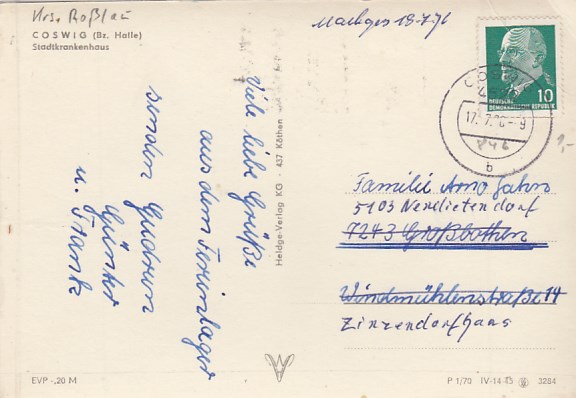 Krs. Roßlau
COSWIG (Bz. Halle)
Stadtkrankenhaus
Viele liebe Grüße
aus dem Ferienlager
senden Gudrun
Günter
u. Frank
Heldge-Verlag KG · 437 Köthen
EVP -,20 M
18-7-76
10
DEUTSCHE
DEMOKRATISCHE REPUBLIK
17.7.76-9
b
1,-
Familie Arno Jahn
5103 Neudietendorf
7243 Großbothen
Windmühlenstraße 14
Zinzendorfhaus
P 1/70 IV-14-45 3284